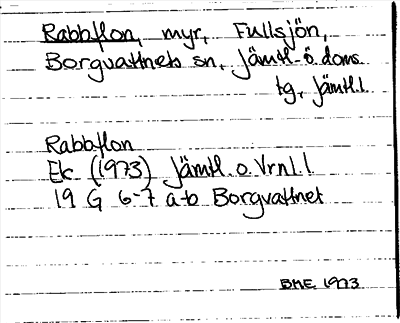 Rabbflon, myr, Fullsjön,
Borgvattnets sn, Jämtl. ö. doms.
tg, Jämtl. l.
Rabbflon
Ek (1973) Jämtl o. Vrnl. l
19 G 6-7 a-b Borgvattnet
BME 1973